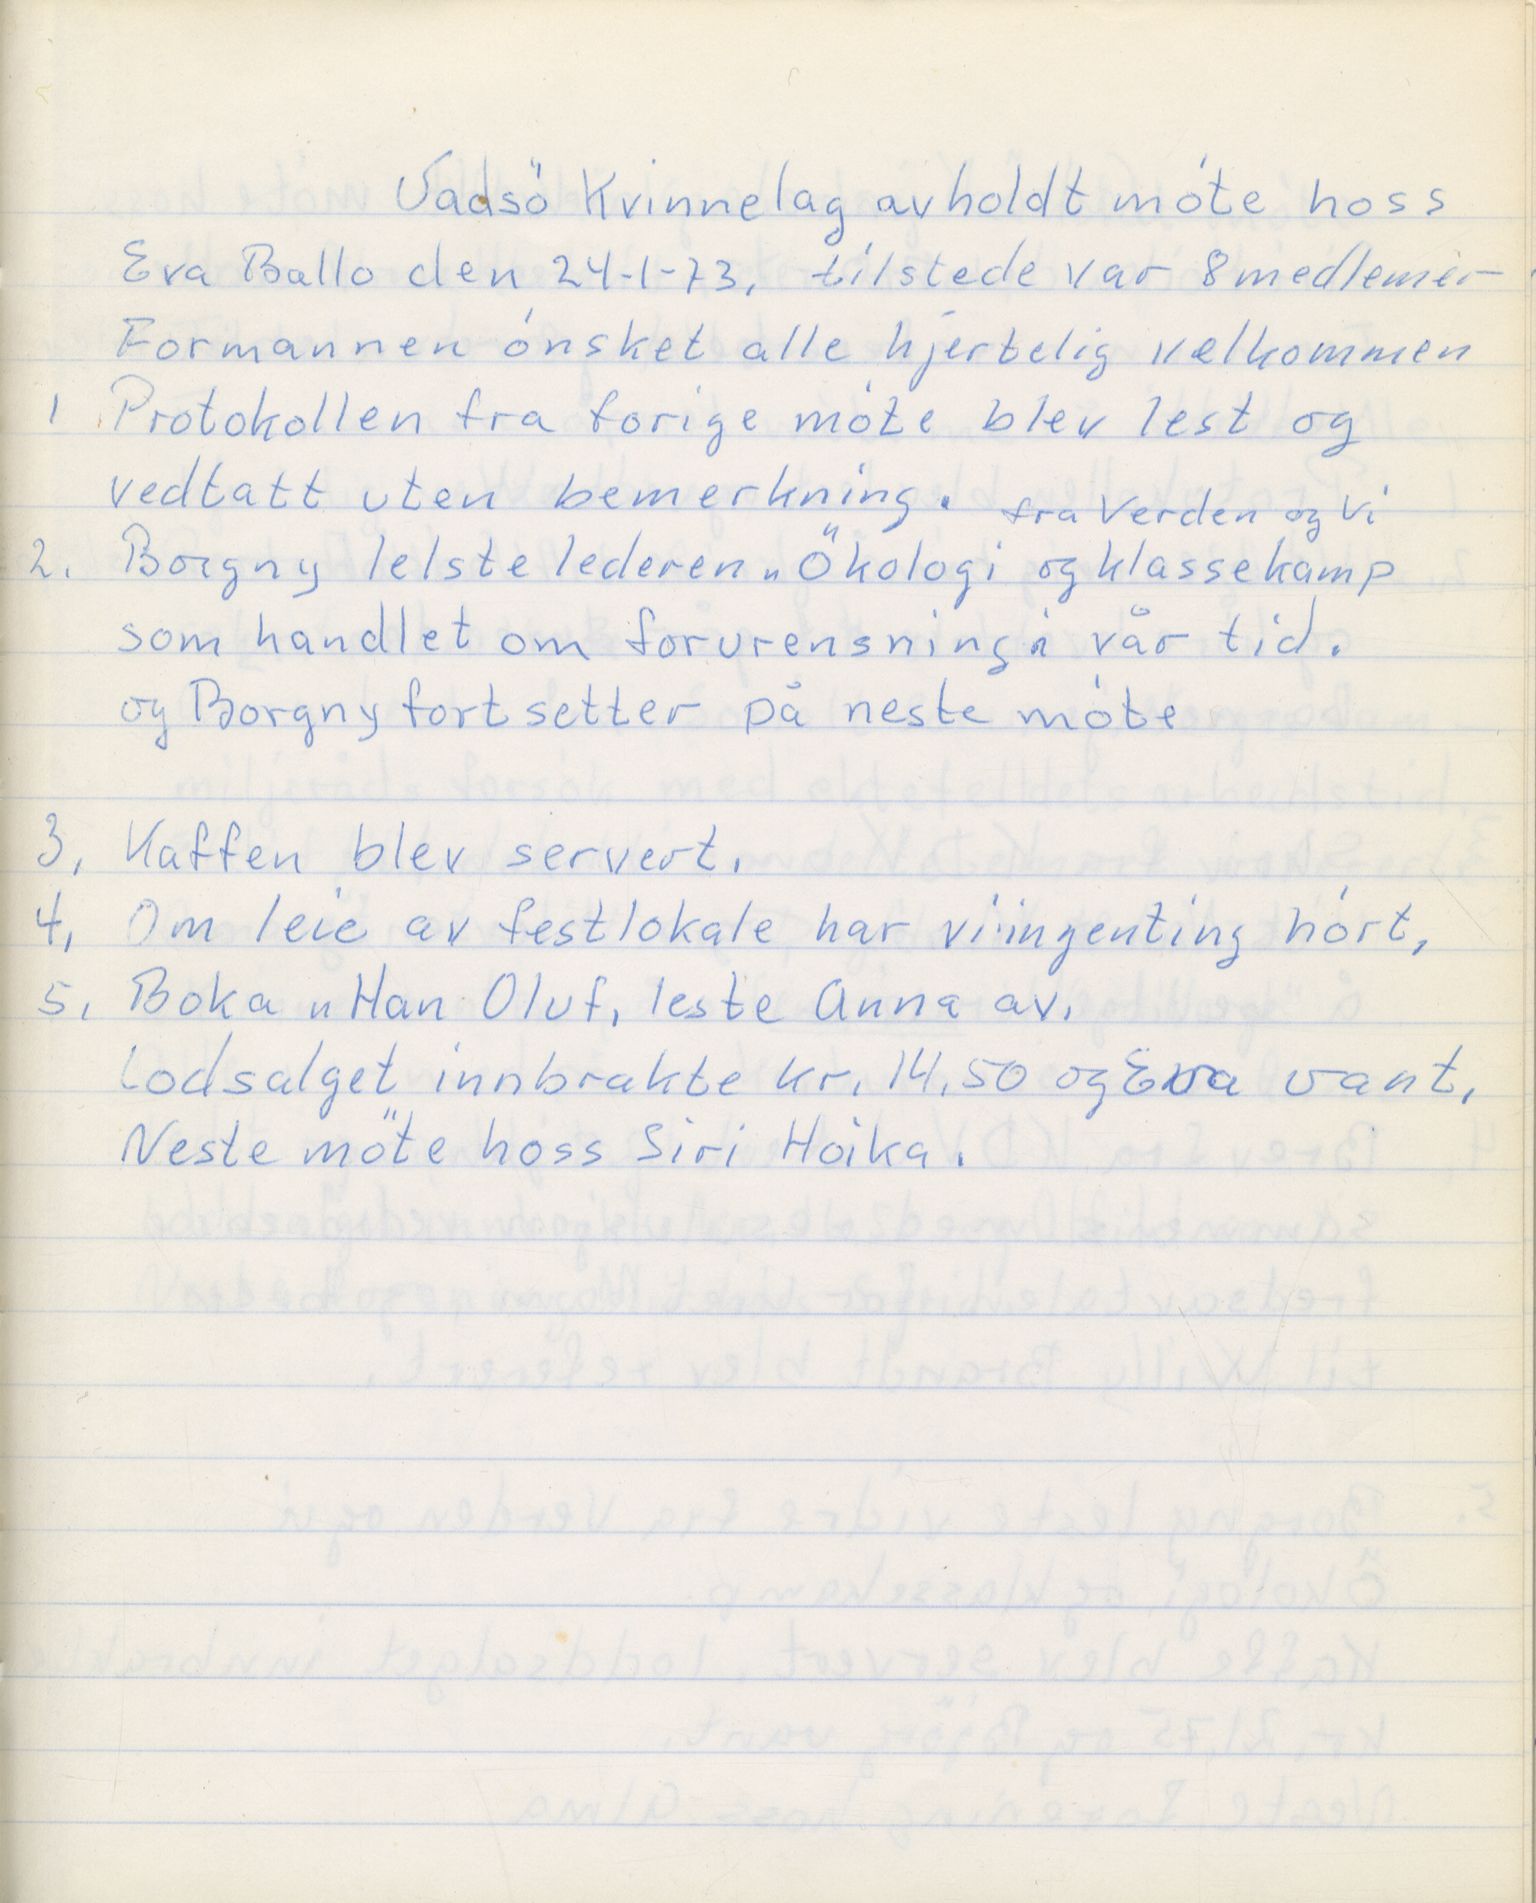 Vadsö Kvinnelag avholdt móte hoss
Eva Ballo den 24-1-73, tilstede var 8 medlemer
Formannen ónsket alle hjertelig velkommen
1 Protokollen fra forige móte blev lest og
vedtatt uten bemerkning.
fra Verden og Vi
2. Borgny lelste lederen „Ökologi og klassekamp
som handlet om forurensning i vår tid.
og Borgny fortsetter på neste móte
3, Kaffen blev servert.
4, Om leie av festlokale har vi ingenting hórt,
5, Boka „Han Oluf, leste Anna av.
Lodsalget innbrakte kr. 14,50 og Eva vant,
Neste möte hoss Siri Hoika.